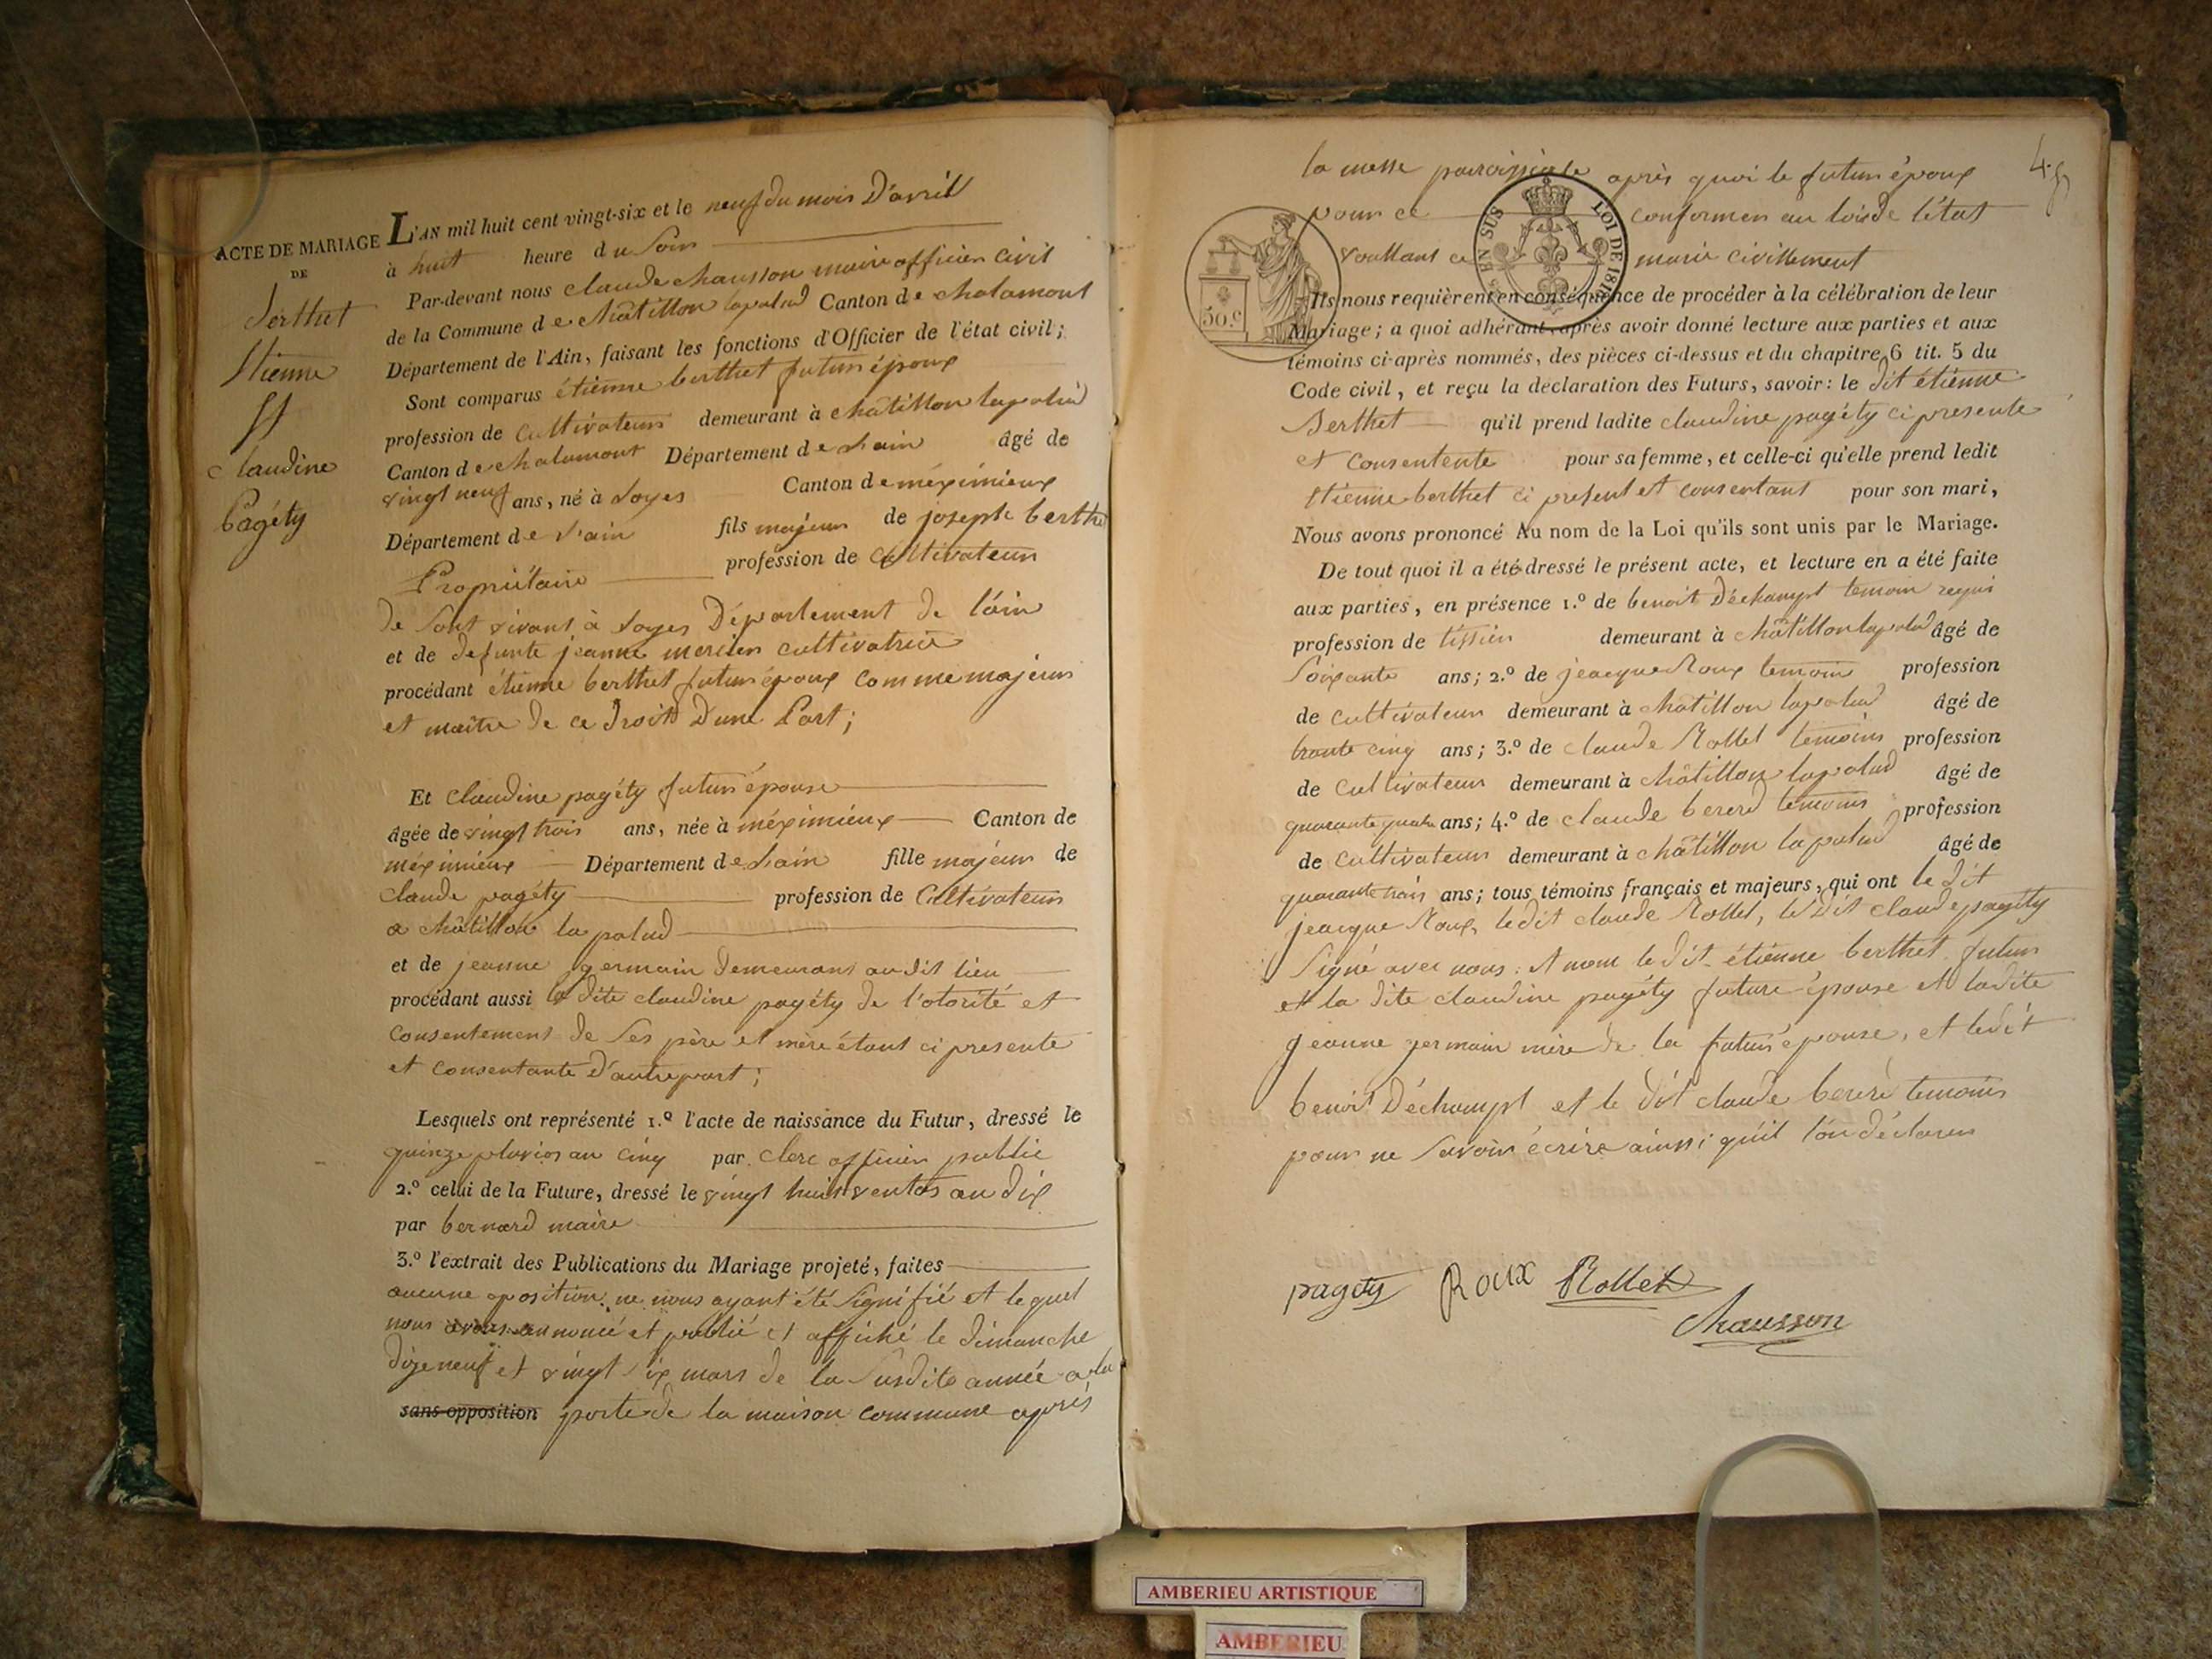 ACTE DE MARIAGE
DE
Berthet
Etienne
Et
Claudine
Pagéty
L'AN mil huit cent vingt-six et le neuf du mois D'avril
à huit heure du Soir
Par-devant nous claude chausson maire officier civil
de la Commune de châtillon lapalud Canton de chalamont
Département de l'Ain, faisant les fonctions d'Officier de l'état civil;
Sont comparus étienne berthet futur époux
profession de Cultivateur demeurant à châtillon lapalud
Canton de chalamont Département de Lain âgé de
vingt neuf ans, né à Loyes Canton de méximieux
Département de L'ain fils majeur de joseph berthe
Propriétaire profession de Cultivateur
de Sont vivant à Loyes Département de l'ain
et de defunte jeanne mercier cultivatrice
procédant étienne berthet futur époux comme majeur
et maitre de ce Droits D'une Part;
Et Claudine pagéty futur épouse
âgée de vingt trois ans, née à méximieux Canton de
méximieux Département de Lain fille majeur de
claude pagéty profession de Cultivateur
a châtillon la palud
et de jeanne germain demeurant audit lieu
procédant aussi la dite claudine pagéty de l'otorité et
consentement de Ses père et mère étant ci presente
et consentante D'autre part;
Lesquels ont représenté 1.º l'acte de naissance du Futur, dressé le
quinze pluvios an cinq par Clerc officier public
2.º celui de la Future, dressé le vingt huit ventos an dix
par bernard maire
3.º l'extrait des Publications du Mariage projeté, faites
aucune oposition ne nous ayant été Signifié et lequel
nous avons annoncé et publié et affiché le dimanche
dixe neuf et vingt Six mars de la Susdite année a la
sans opposition porte de la maison commune après
4.
la messe paroissiale après quoi le futur époux
pour ce conformer au loisde l'état
voullant ce marié civillement
EN SUS LOI DE 1816
50.c
Ils nous requièrent en conséquence de procéder à la célébration de leur
Mariage; à quoi adhérant, après avoir donné lecture aux parties et aux
témoins ci-après nommés, des pièces ci-dessus et du chapitre 6 tit. 5 du
Code civil, et reçu la déclaration des Futurs, savoir: le dit étienne
Berthet qu'il prend ladite claudine pagéty ci presente
et Consentente pour sa femme, et celle-ci qu'elle prend ledit
Etienne berthet ci présent et consentant pour son mari,
Nous avons prononcé Au nom de la Loi qu'ils sont unis par le Mariage.
De tout quoi il a été dressé le présent acte, et lecture en a été faite
aux parties, en présence 1.º de benoit Déchampt temoin requis
profession de tissier demeurant à châtillon lapalud âgé de
Soixante ans; 2.º de jeacque Roux temoin profession
de cultivateur demeurant à châtillon lapalud âgé de
trante cinq ans; 3.º de claude Rollet temoins profession
de cultivateur demeurant à châtillon lapalud âgé de
quarante quatre ans; 4.º de claude bererd temoins profession
de cultivateur demeurant à châtillon la palud âgé de
quarante trois ans; tous témoins français et majeurs, qui ont le dit
jeacque Roux, ledit claude Rollet, le dit claude pagéty
Signé avec nous. et nom le dit étienne berthet futur
et la dite claudine pagéty future épouse et ladite
jeanne germain mère de la futur épouse, et ledit
benoit Déchampt et le dit claude bererd temoins
pour ne Savoir écrire ainssi quil l'on déclarer
pagety Roux Rollet
Chausson
AMBERIEU ARTISTIQUE
AMBERIEU